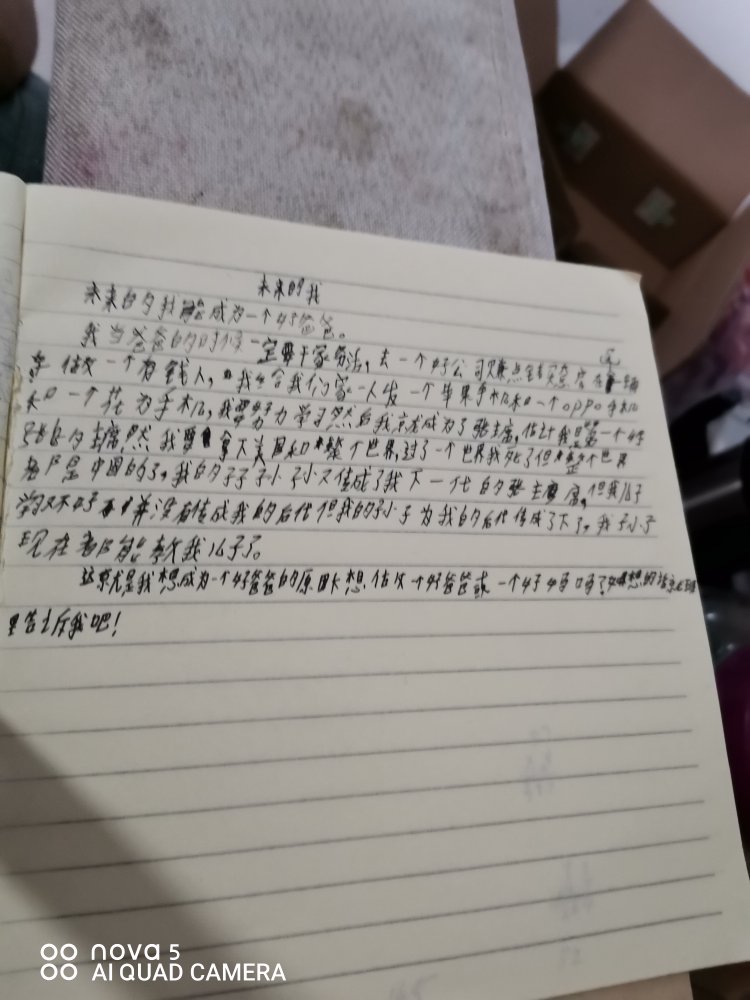 未来的我
未来的我能成为一个好爸爸。
我当爸爸的时候一定要干家务活，去一个好公司赚点钱买套房在
做一个有钱人，我会给我们家一人发一个苹果手机和一个oppo手机
和一个花为手机，我要努力学习然后我就成为了张主席，估计我是第一个姓
张的主席然我要拿下美国和整个世界，过了一个世界我死了但整个世界
是中国的了，我的子子小子小又传成了我下一代的张主席，但我儿子
学习不好并没有传成我的后代但我的孙子为我的后代传成了下了，我孙子
现在都能教我儿子了。
这就是我想成为一个好爸爸的原因你想估次一个好爸爸或一个好妈妈吗？想的话就
告诉我吧！
nova 5
AI QUAD CAMERA